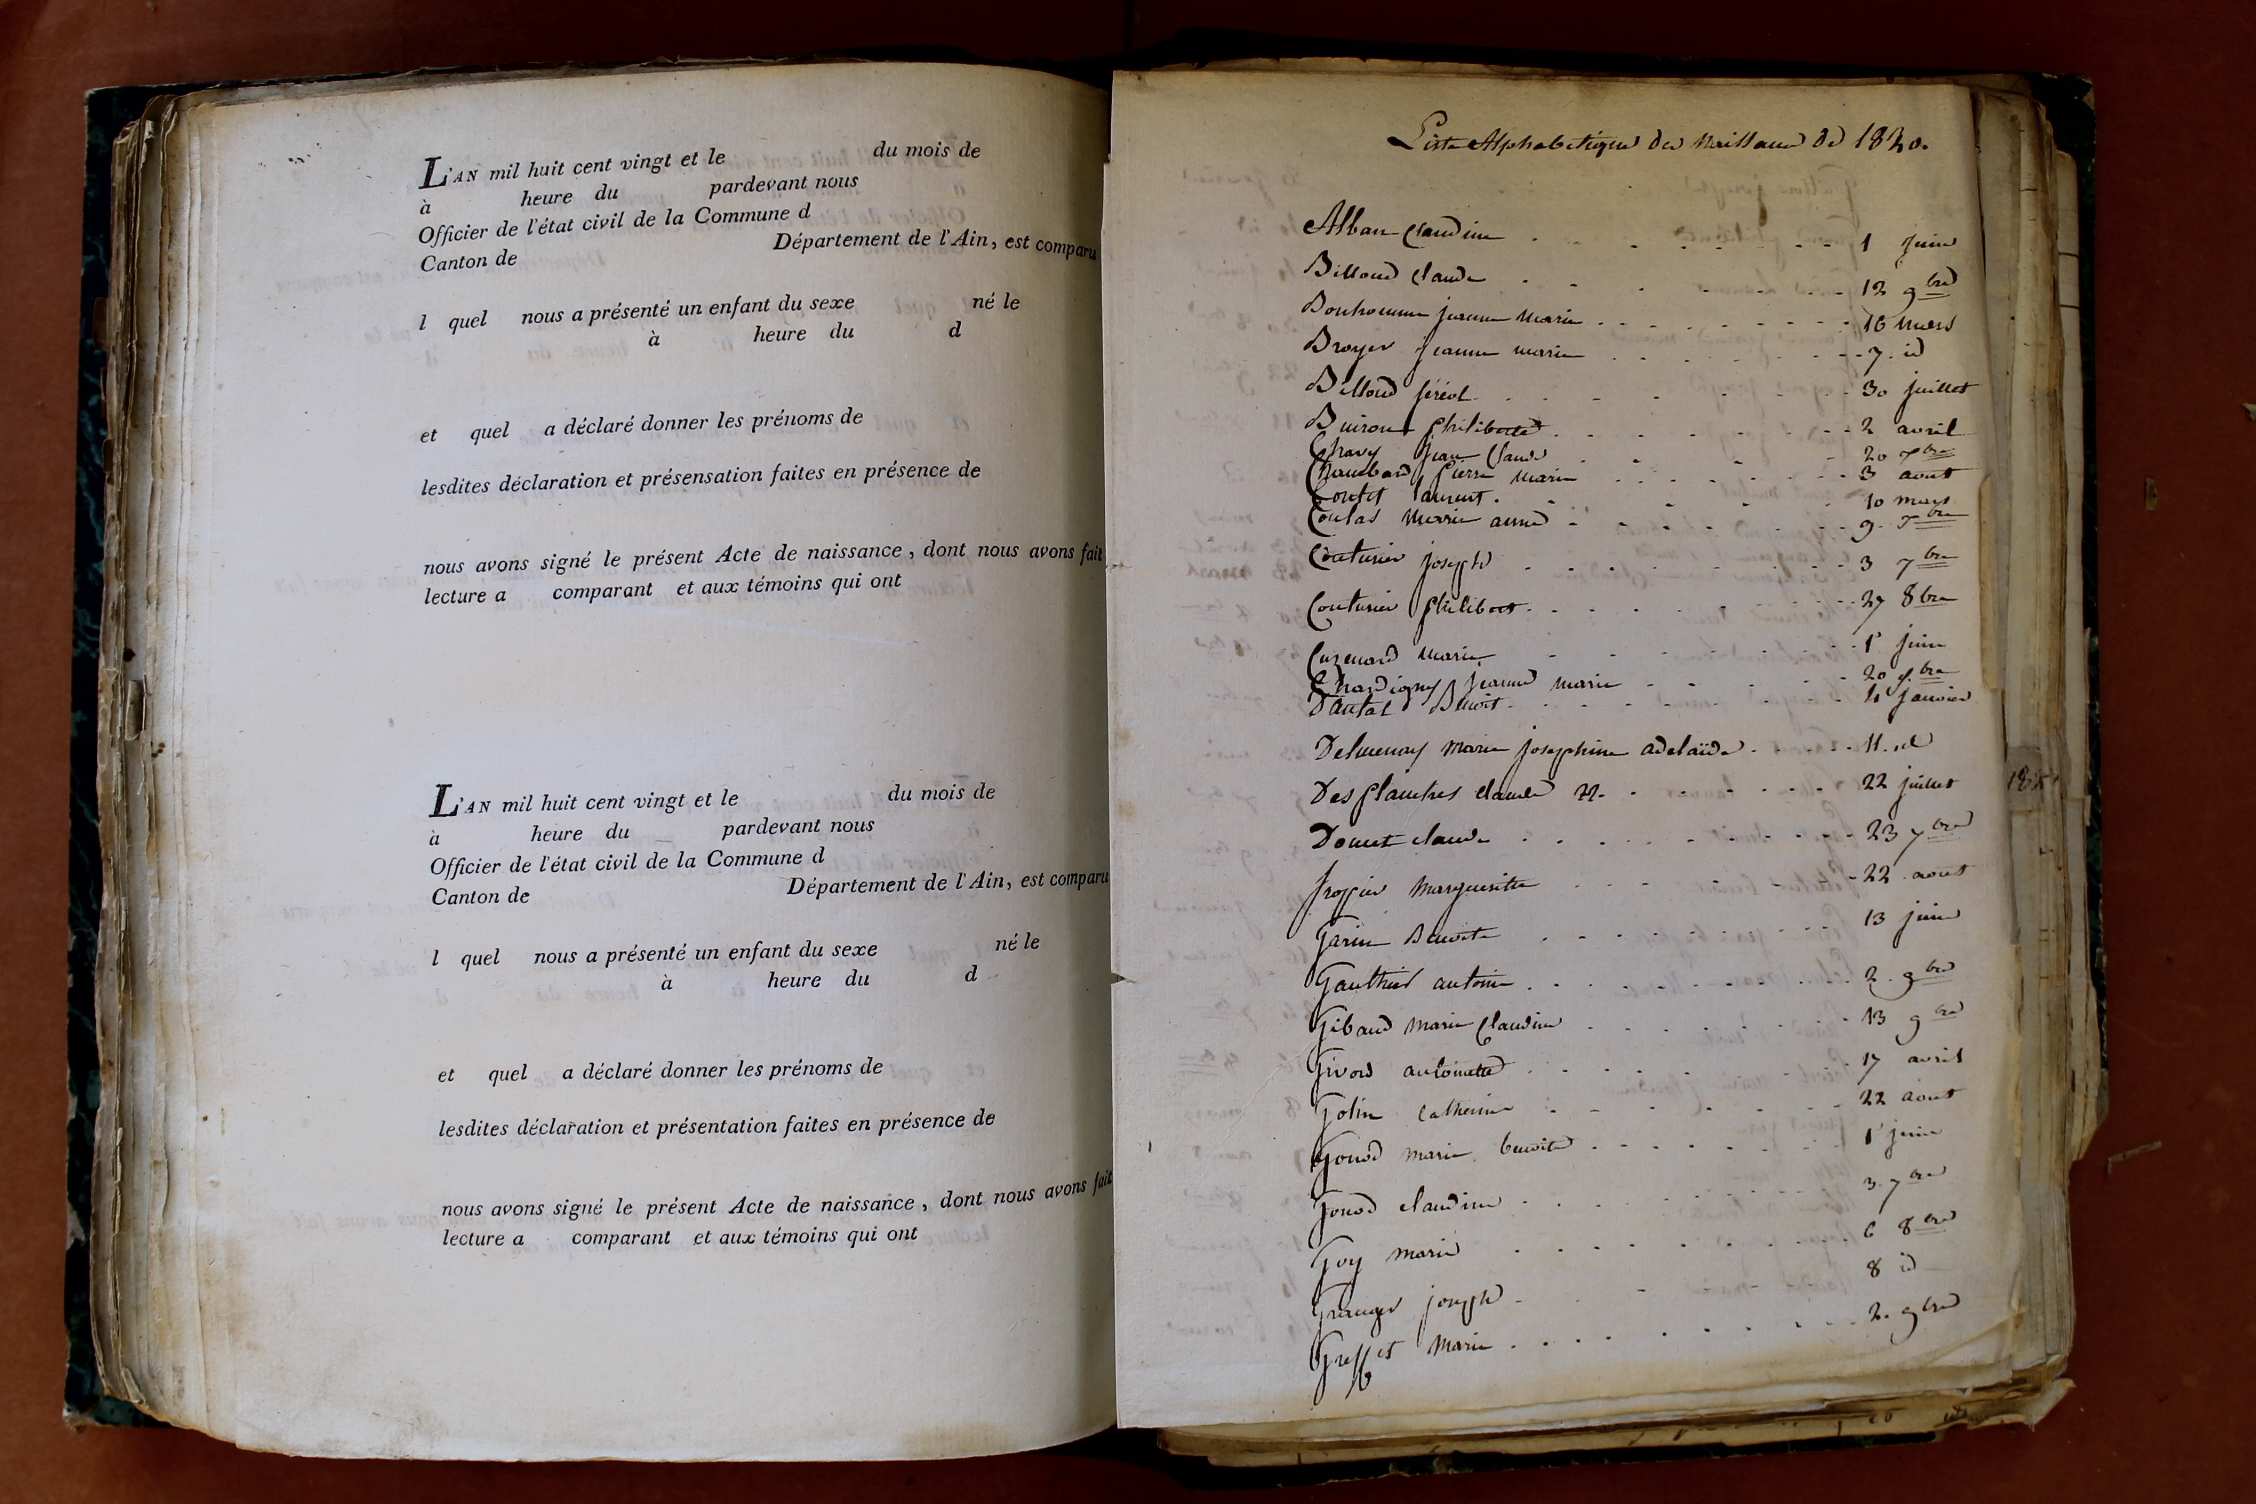 L'AN mil huit cent vingt et le du mois de
à heure du pardevant nous
Officier de l'état civil de la Commune d
Canton de Département de l'Ain, est comparu
l quel nous a présenté un enfant du sexe né le
à heure du d
et quel a déclaré donner les prénoms de
lesdites déclaration et présensation faites en présence de
nous avons signé le présent Acte de naissance, dont nous avons fait
lecture a comparant et aux témoins qui ont
L'AN mil huit cent vingt et le du mois de
à heure du pardevant nous
Officier de l'état civil de la Commune d
Canton de Département de l'Ain, est comparu
l quel nous a présenté un enfant du sexe né le
à heure du d
et quel a déclaré donner les prénoms de
lesdites déclaration et présentation faites en présence de
nous avons signé le présent Acte de naissance, dont nous avons fait
lecture a comparant et aux témoins qui ont
Liste Alphabetique des Naissances de 1820.
Alban Claudine 1 juin
Billoud Claude 12 9bre
Bonhomme jeanne Marie 16 Mars
Broyer jeanne marie 7 id
Billoud féréol 30 juillet
Buiron philiberte 2 avril
Chavy jean Claude 20 7bre
Chambard pierre marie 3 aout
Contet laurent 10 mars
Coulas Marie anne 9 7bre
Couturier joseph 3 7bre
Couturier philibert 27 8bre
Cuzenard marie 1er juin
Chardigny jeanne marie 20 9bre
Dautal Benoit 4 janvier
Delmenay marie josephine adelaïde 11 id
Desplanches claude 22 juillet
Doucet claude 23 7bre
froppier marguerite 22 aout
Garin Benoite 13 juin
Gauthier antoine 2 9bre
Gibaud marie Claudine 13 9bre
Givord antoinette 17 avril
Golin catherine 22 aout
Gonod marie benoite 1er juin
Gonod claudine 3 7bre
Goy marie 6 8bre
Granger joseph 8 id
Greffet marie 2 9bre